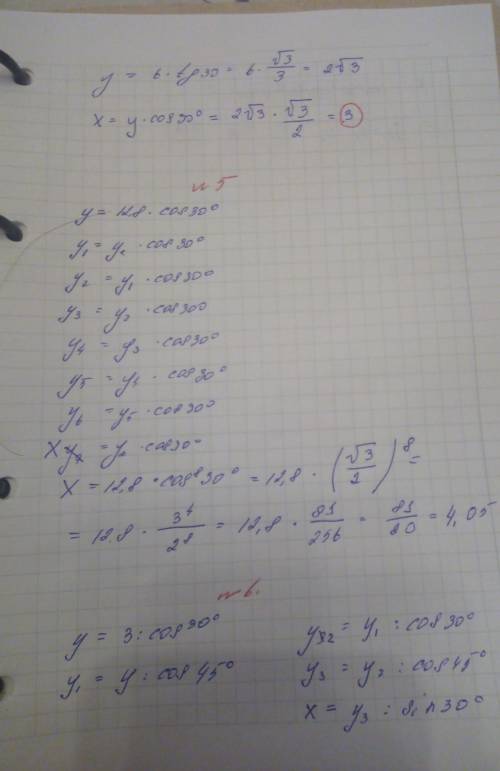 y = 6 · tg 30 = 6 · √3/3 = 2√3
x = y · cos 30° = 2√3 · √3/2 = 3
№5
y = 12,8 · cos 30°
y₁ = y · cos 30°
y₂ = y₁ · cos 30°
y₃ = y₂ · cos 30°
y₄ = y₃ · cos 30°
y₅ = y₄ · cos 30°
y₆ = y₅ · cos 30°
x = y₆ · cos 30°
x = 12,8 · cos⁸ 30° = 12,8 · (√3/2)⁸ =
= 12.8 · 3⁴/2⁸ = 12,8 · 81/256 = 81/20 = 4,05
№6.
y = 3 : cos 30°
y₁ = y : cos 45°
y₂ = y₁ : cos 30°
y₃ = y₂ : cos 45°
x = y₃ : sin 30°